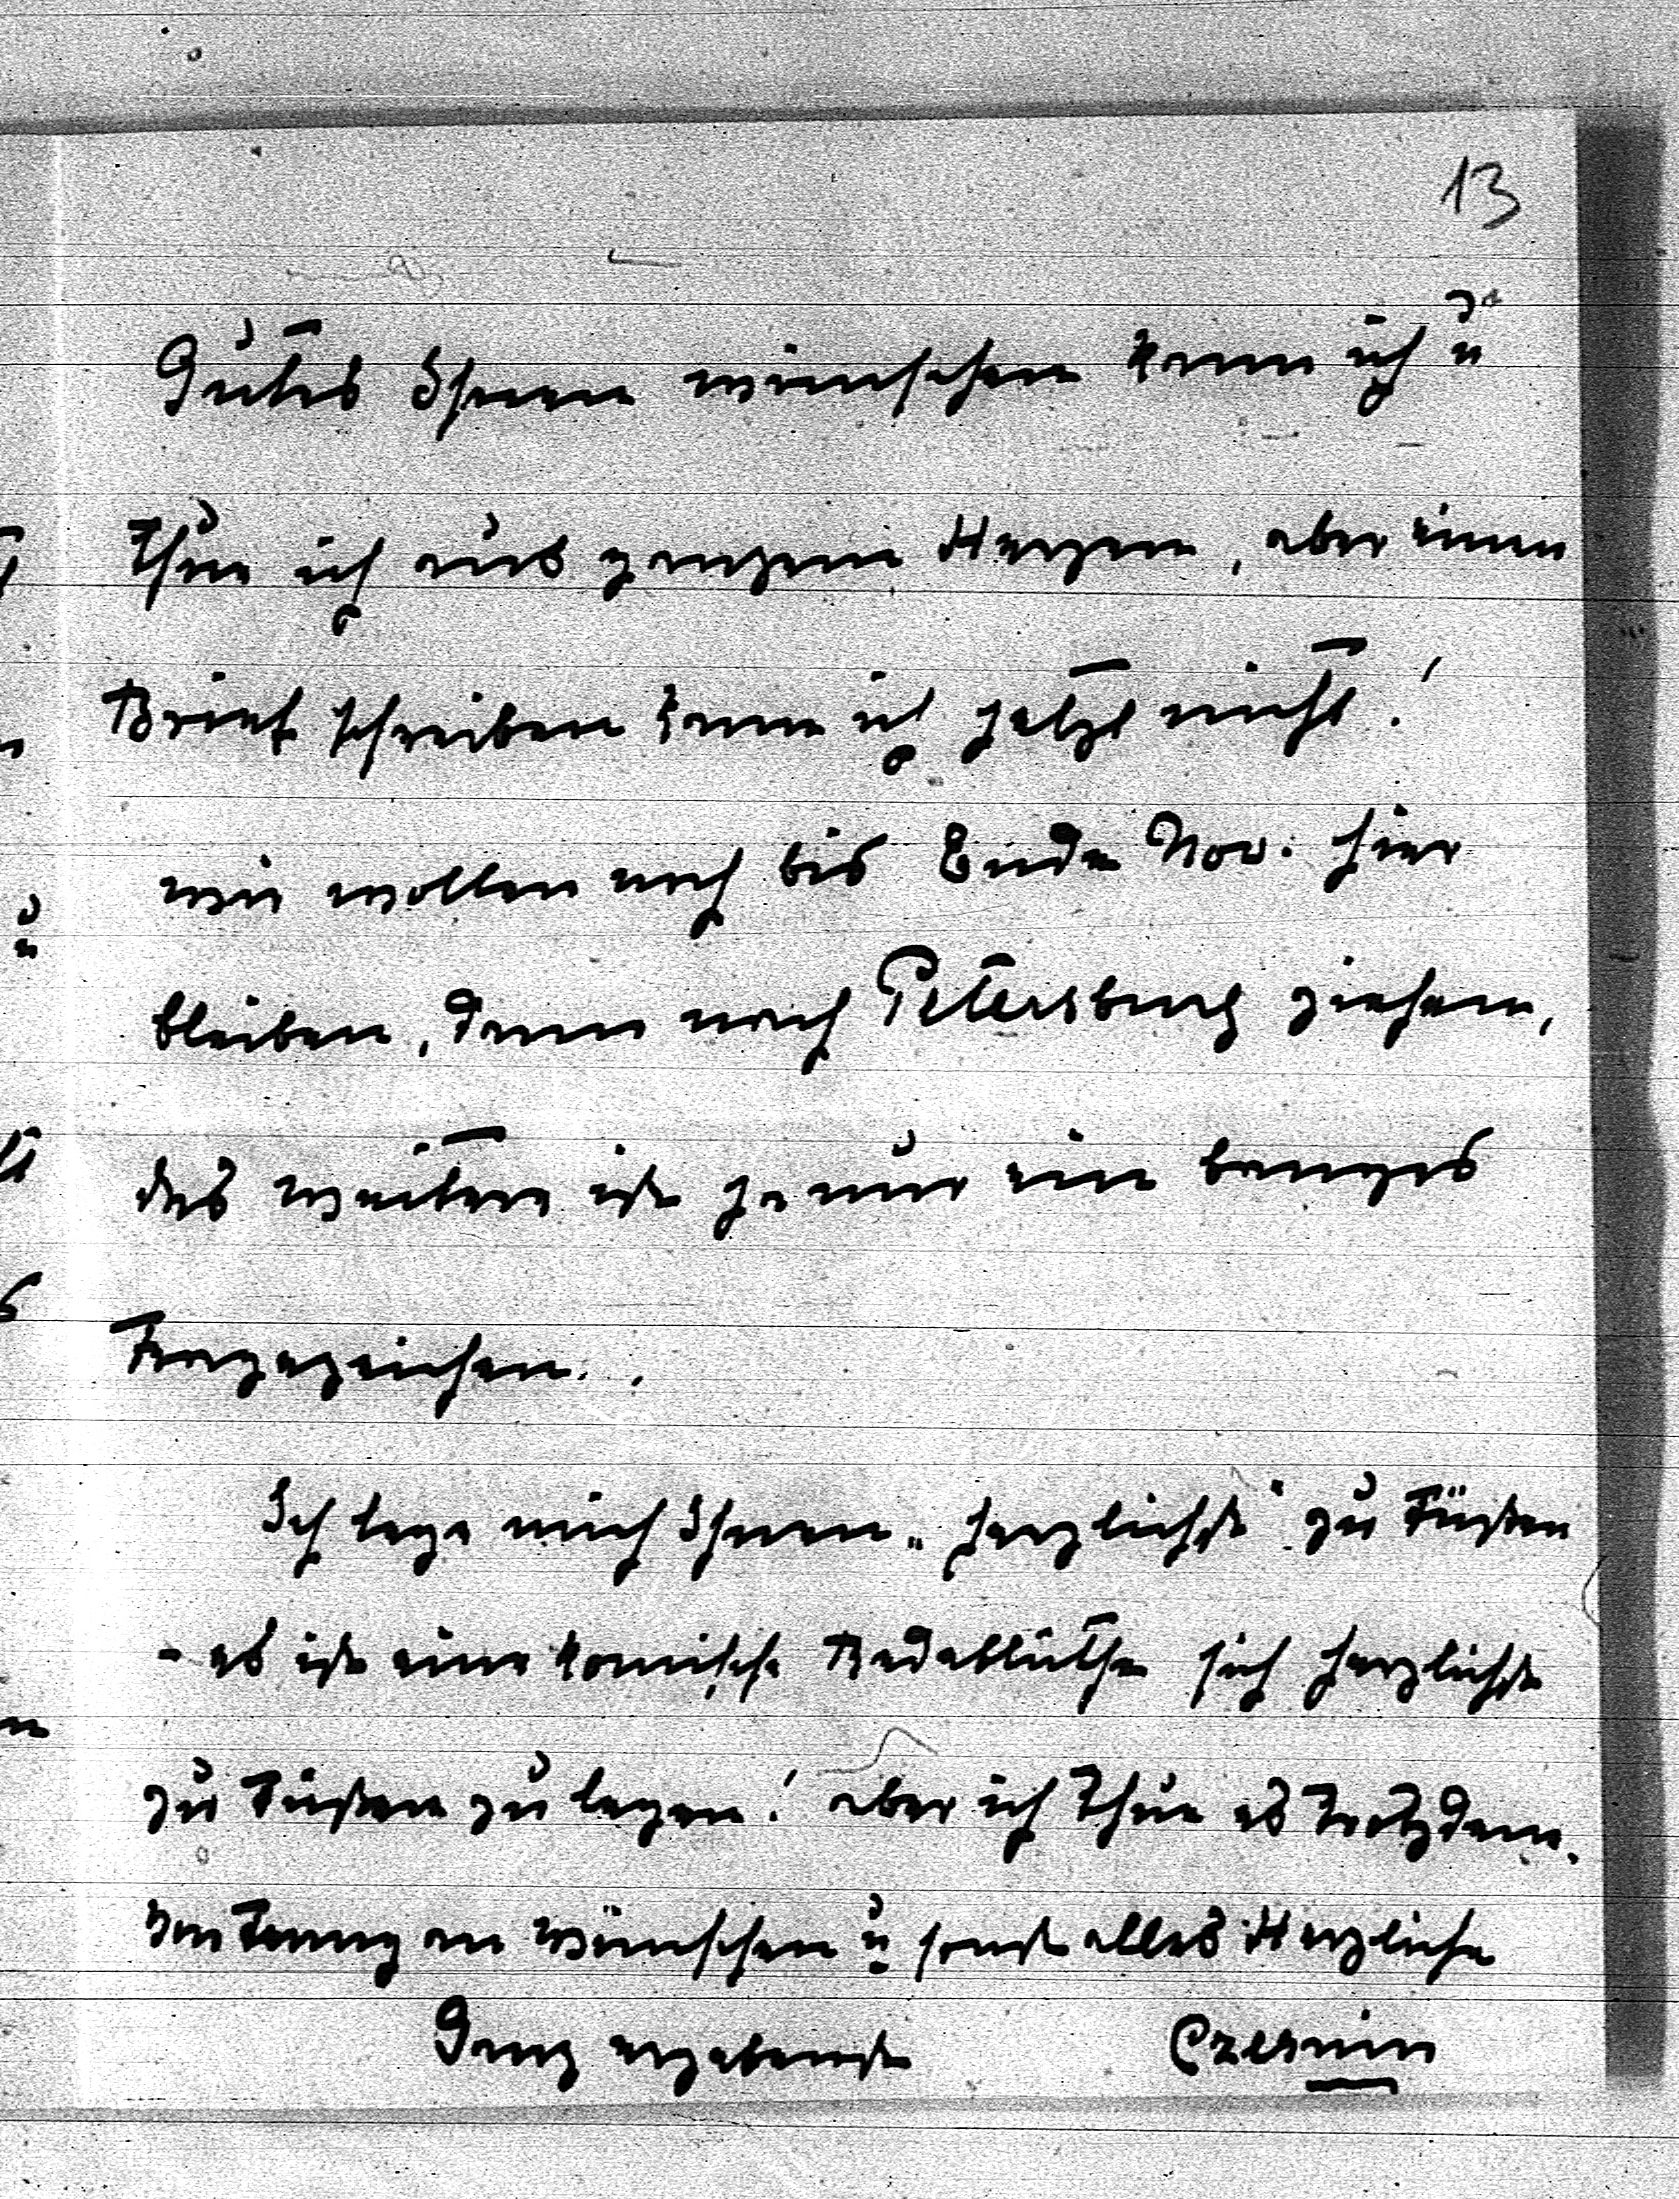 13
Gutes Ihnen wünschen kann ich u
thue ich aus ganzem Herzen, aber einen
Brief schreiben kann ich jetzt nicht!
wir wollen noch bis Ende Nov. hier
bleiben, dann nach Petersburg ziehen,
das weitere ist ja nur ein banges
Fragezeichen..
Ich lege mich Ihnen „herzlichst" zu Füßen
- es ist eine komische Redeblüthe sich herzlichst
zu Füßen zu legen! aber ich thue es trotzdem.
an Wünschen u sonst alles Herzliche
Ganz ergebenst Czernin